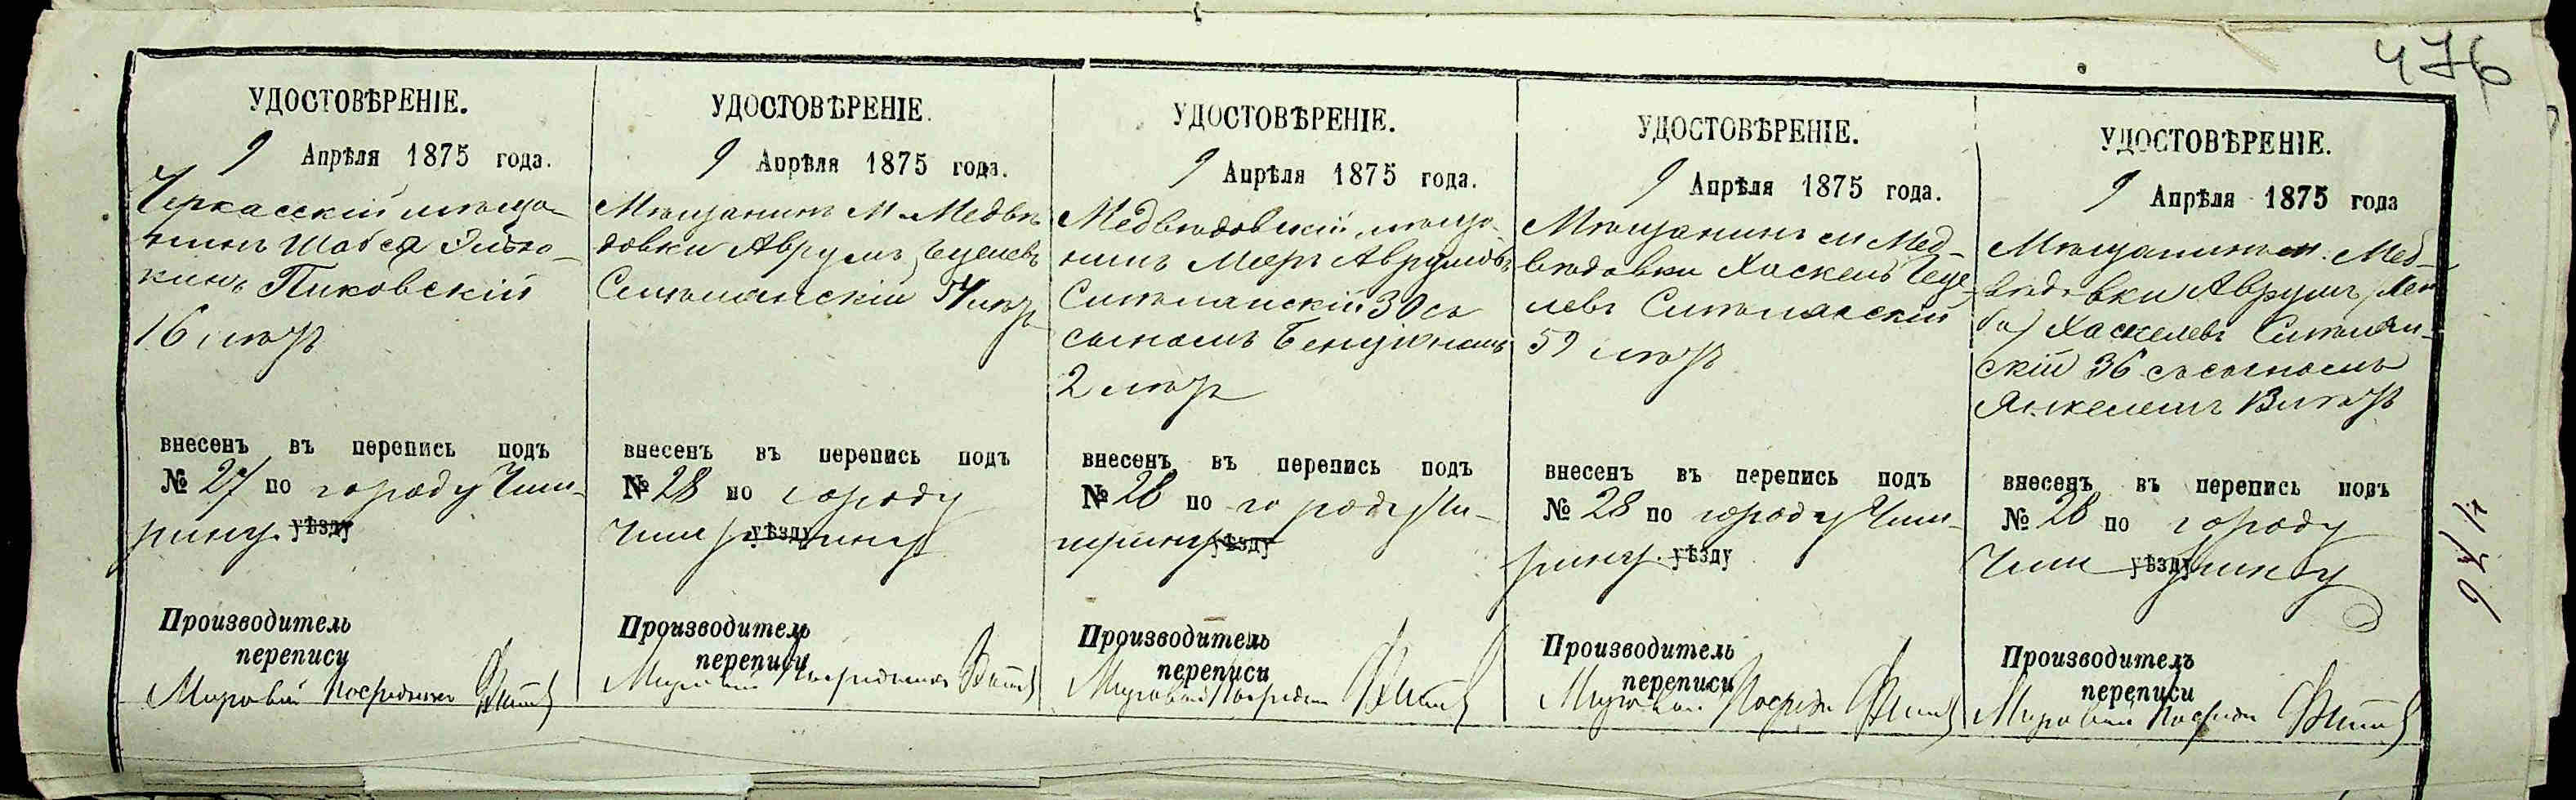 476
УДОСТОВѢРЕНІЕ.
9 Апрѣля 1875 года.
Черкасскій мѣща-
нинъ Шабся Элью-
кинъ Пиковскій
16 лѣтъ
внесенъ въ перепись подъ
№ 27 по городу Чиги-
рину. уѣзду
Производитель
переписи
Мировой Посредникъ
УДОСТОВѢРЕНІЕ.
9 Апрѣля 1875 года.
Мѣщанинъ М. Медвѣ-
довки Аврумъ
54 лѣтъ
внесенъ въ перепись подъ
№ 28 по городу
Чигирину уѣзду
Производитель
переписи
Мировой Посредникъ
УДОСТОВѢРЕНІЕ.
9 Апрѣля 1875 года.
Медвѣдовскій мѣща-
нинъ Мееръ Аврумовъ
30 съ
сыномъ Бенціономъ
2 лѣтъ
внесенъ въ перепись подъ
№ 28 по городу Чи-
гирину уѣзду
Производитель
переписи
Мировой Посредникъ
УДОСТОВѢРЕНІЕ.
9 Апрѣля 1875 года.
Мѣщанинъ м Мед-
вѣдовки Хаскель
59 лѣтъ
внесенъ въ перепись подъ
№ 28 по городу Чиги-
рину. уѣзду
Производитель
переписи
Мировой Посредн
УДОСТОВѢРЕНІЕ.
9 Апрѣля 1875 года
Мѣщанинъ м. Мед-
вѣдовки Аврумъ Лей
ба) Хаскелевъ
скій 36 съ сыномъ
Янкелемъ 13 лѣтъ
внесенъ въ перепись подъ
№ 28 по городу
Чигирину уѣзду
Производитель
переписи
Мировой Посредн